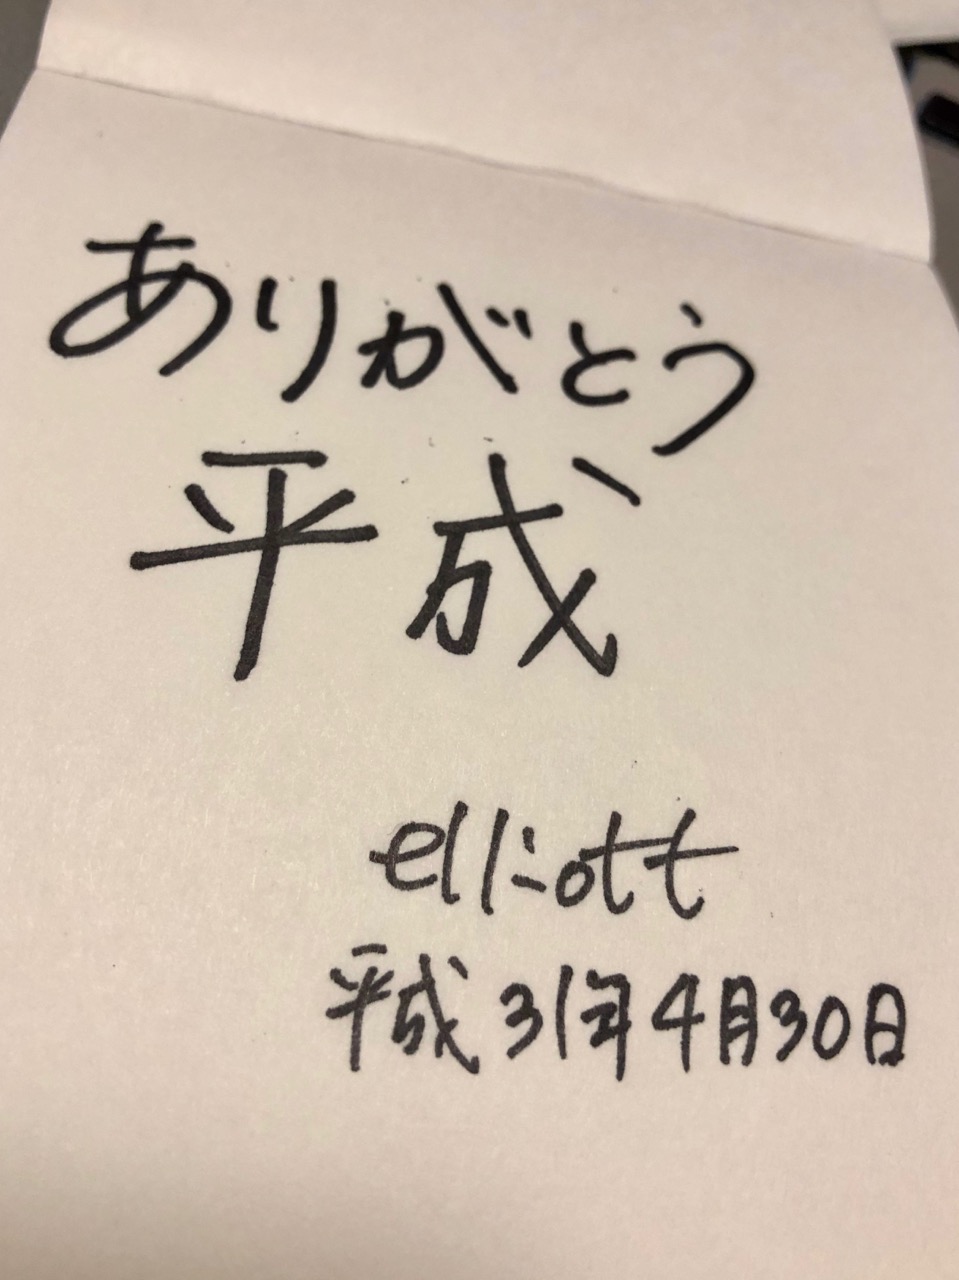 ありがとう
平成
elliott
平成31年4月30日